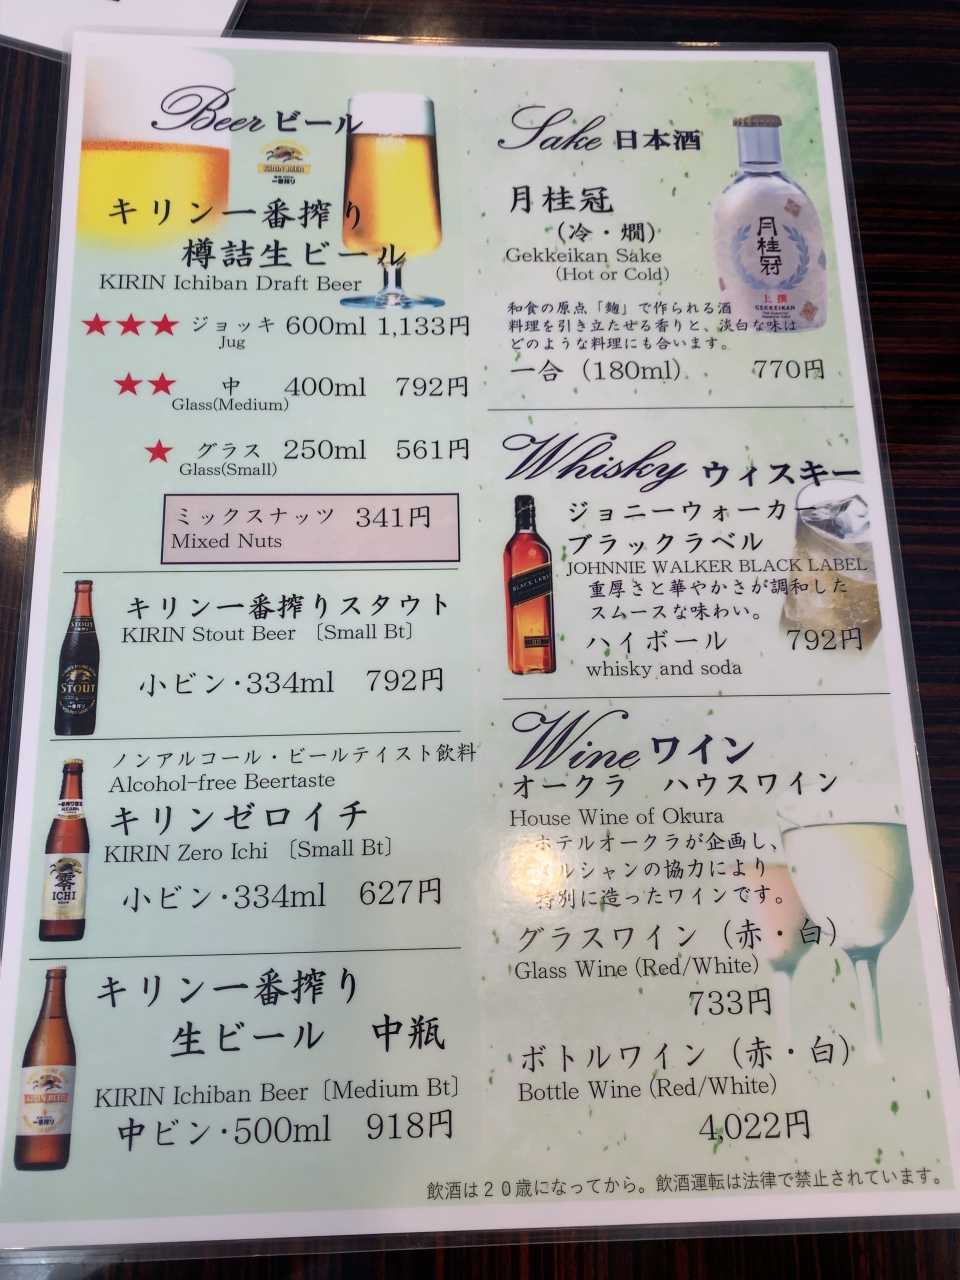 Beer ビール
KIRIN BEER
一番搾り
キリン一番搾り
樽詰生ビール
KIRIN Ichiban Draft Beer
★★★ ジョッキ 600ml 1,133円
Jug
★★ 中 400ml 792円
Glass(Medium)
★ グラス 250ml 561円
Glass(Small)
ミックスナッツ 341円
Mixed Nuts
キリン一番搾りスタウト
KIRIN Stout Beer 〔Small Bt〕
STOUT
小ビン・334ml 792円
ノンアルコール・ビールテイスト飲料
Alcohol-free Beertaste
キリンゼロイチ
KIRIN Zero Ichi 〔Small Bt〕
零
ICHI
小ビン・334ml 627円
キリン一番搾り
生ビール 中瓶
KIRIN Ichiban Beer〔Medium Bt〕
KIRIN BEER
一番搾り
中ビン・500ml 918円
Sake 日本酒
月桂冠
(冷・燗)
Gekkeikan Sake
(Hot or Cold)
月桂冠
上撰
GEKKEIKAN
和食の原点「麹」で作られる酒
料理を引き立たせる香りと、淡白な味は
どのような料理にも合います。
一合（180ml） 770円
Whisky ウィスキー
ジョニーウォーカー
ブラックラベル
JOHNNIE WALKER BLACK LABEL
BLACK LABEL
重厚さと華やかさが調和した
スムースな味わい。
ハイボール 792円
whisky and soda
Wine ワイン
オークラ ハウスワイン
House Wine of Okura
ホテルオークラが企画し、
メルシャンの協力により
特別に造ったワインです。
グラスワイン（赤・白）
Glass Wine (Red/White)
733円
ボトルワイン（赤・白）
Bottle Wine (Red/White)
4,022円
飲酒は２０歳になってから。飲酒運転は法律で禁止されています。